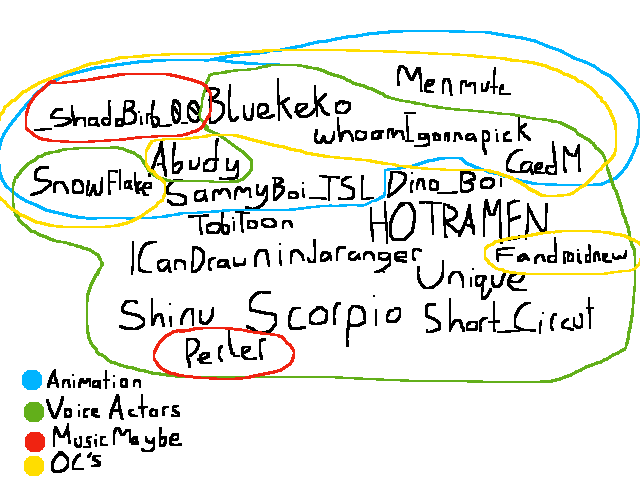 Menmute
_ShadoBirb_0_0
Bluekeko
whoomIgonnapick
Abudy
CaedM
SnowFlake
SammyBoi_TSL
Dino_Boi
TobiToon
HOTRAMEN
ICanDraw
ninjaranger
Fandroidnew
Unique
Shinu
Scorpio
Short_Circut
Perler
Animation
Voice Actors
Music Maybe
OC's